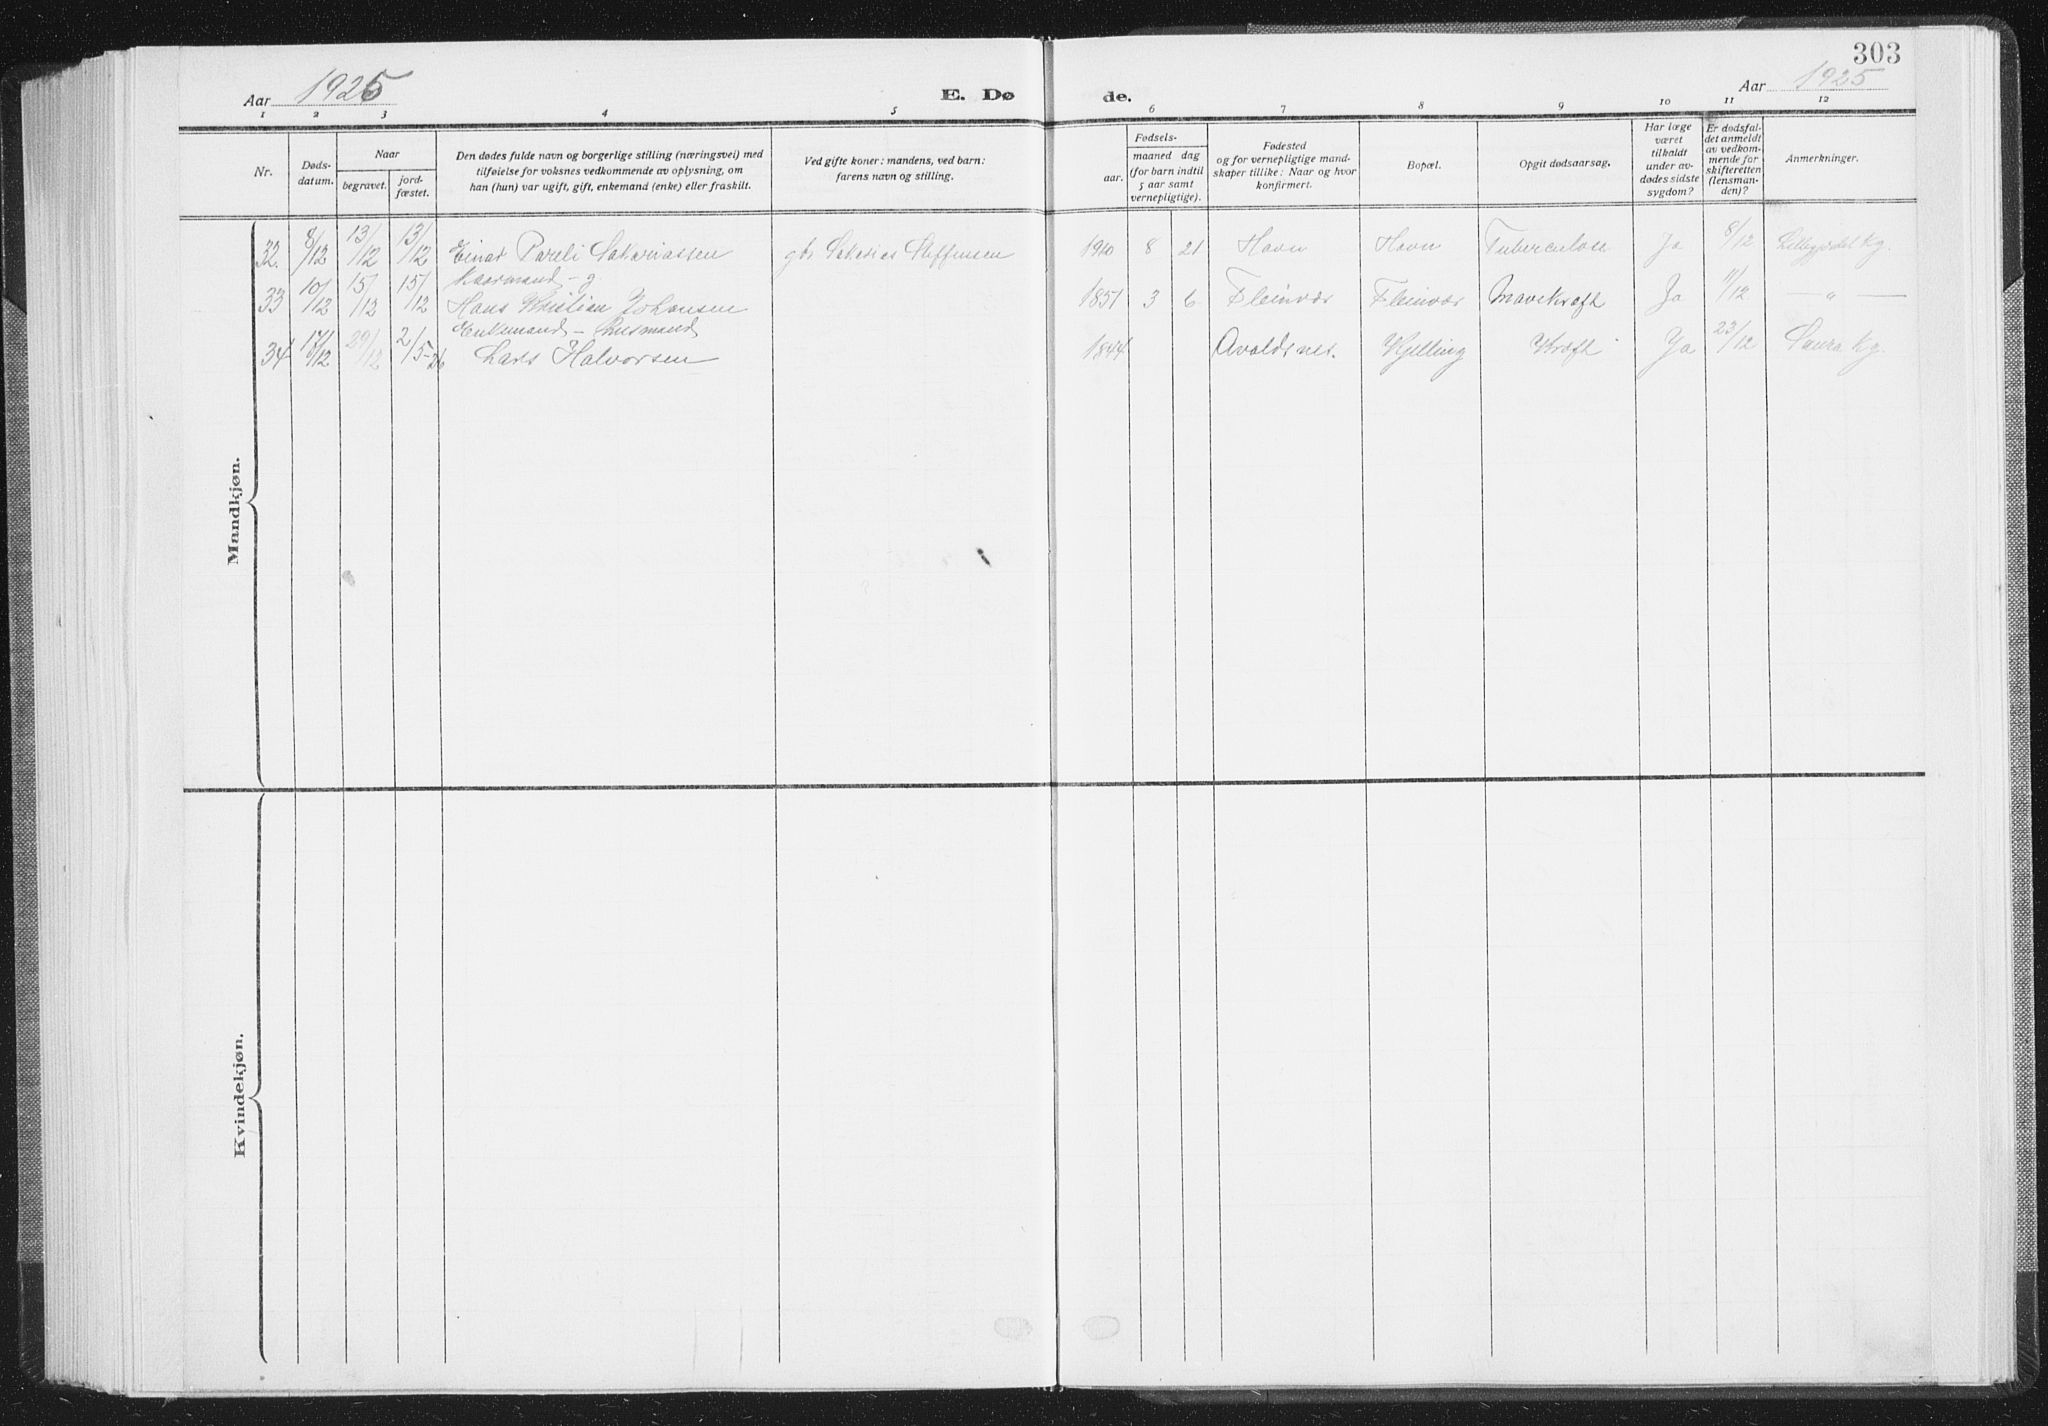 303
Aar 1925 E. Dø de. Aar 1925
1 2 3 4 5 6 7 8 9 10 11 12
Nr.
Døds-
datum.
Naar
begravet.
jord-
fæstet.
Den dødes fulde navn og borgerlige stilling (næringsvei) med
tilføielse for voksnes vedkommende av oplysning, om
han (hun) var ugift, gift, enkemand (enke) eller fraskilt.
Ved gifte koner: mandens, ved barn:
farens navn og stilling.
Fødsels-
aar.
maaned dag
(for barn indtil
5 aar samt
vernepligtige).
Fødested
og for vernepligtige mand-
skaper tillike: Naar og hvor
konfirmert.
Bopæl.
Opgit dødsaarsag.
Har læge
været
tilkaldt
under av-
dødes sidste
sygdom?
Er dødsfal-
det anmeldt
av vedkom-
mende for
skifteretten
(lensman-
den)?
Anmerkninger.
Mandkjøn.
32. 8/12 13/12 13/12 Einar Pareli Sakariassen gbr Sakarias Steffensen 1910 8 21 Havn Havn Tuberculose Ja 8/12 kg.
Kaarmand - g
33 10/12 15/12 15/12 Hans Kristian Johansen 1851 3 6 Fleinvær Fleinvær Mavekræft Ja 11/12 — „ —
Enkemand - husmand
34 17/12 29/12 2/5-26 Lars Halvorsen 1844 Avaldsnes. Kjelling Kræft Ja 23/12 Saura kg.
Kvindekjøn.